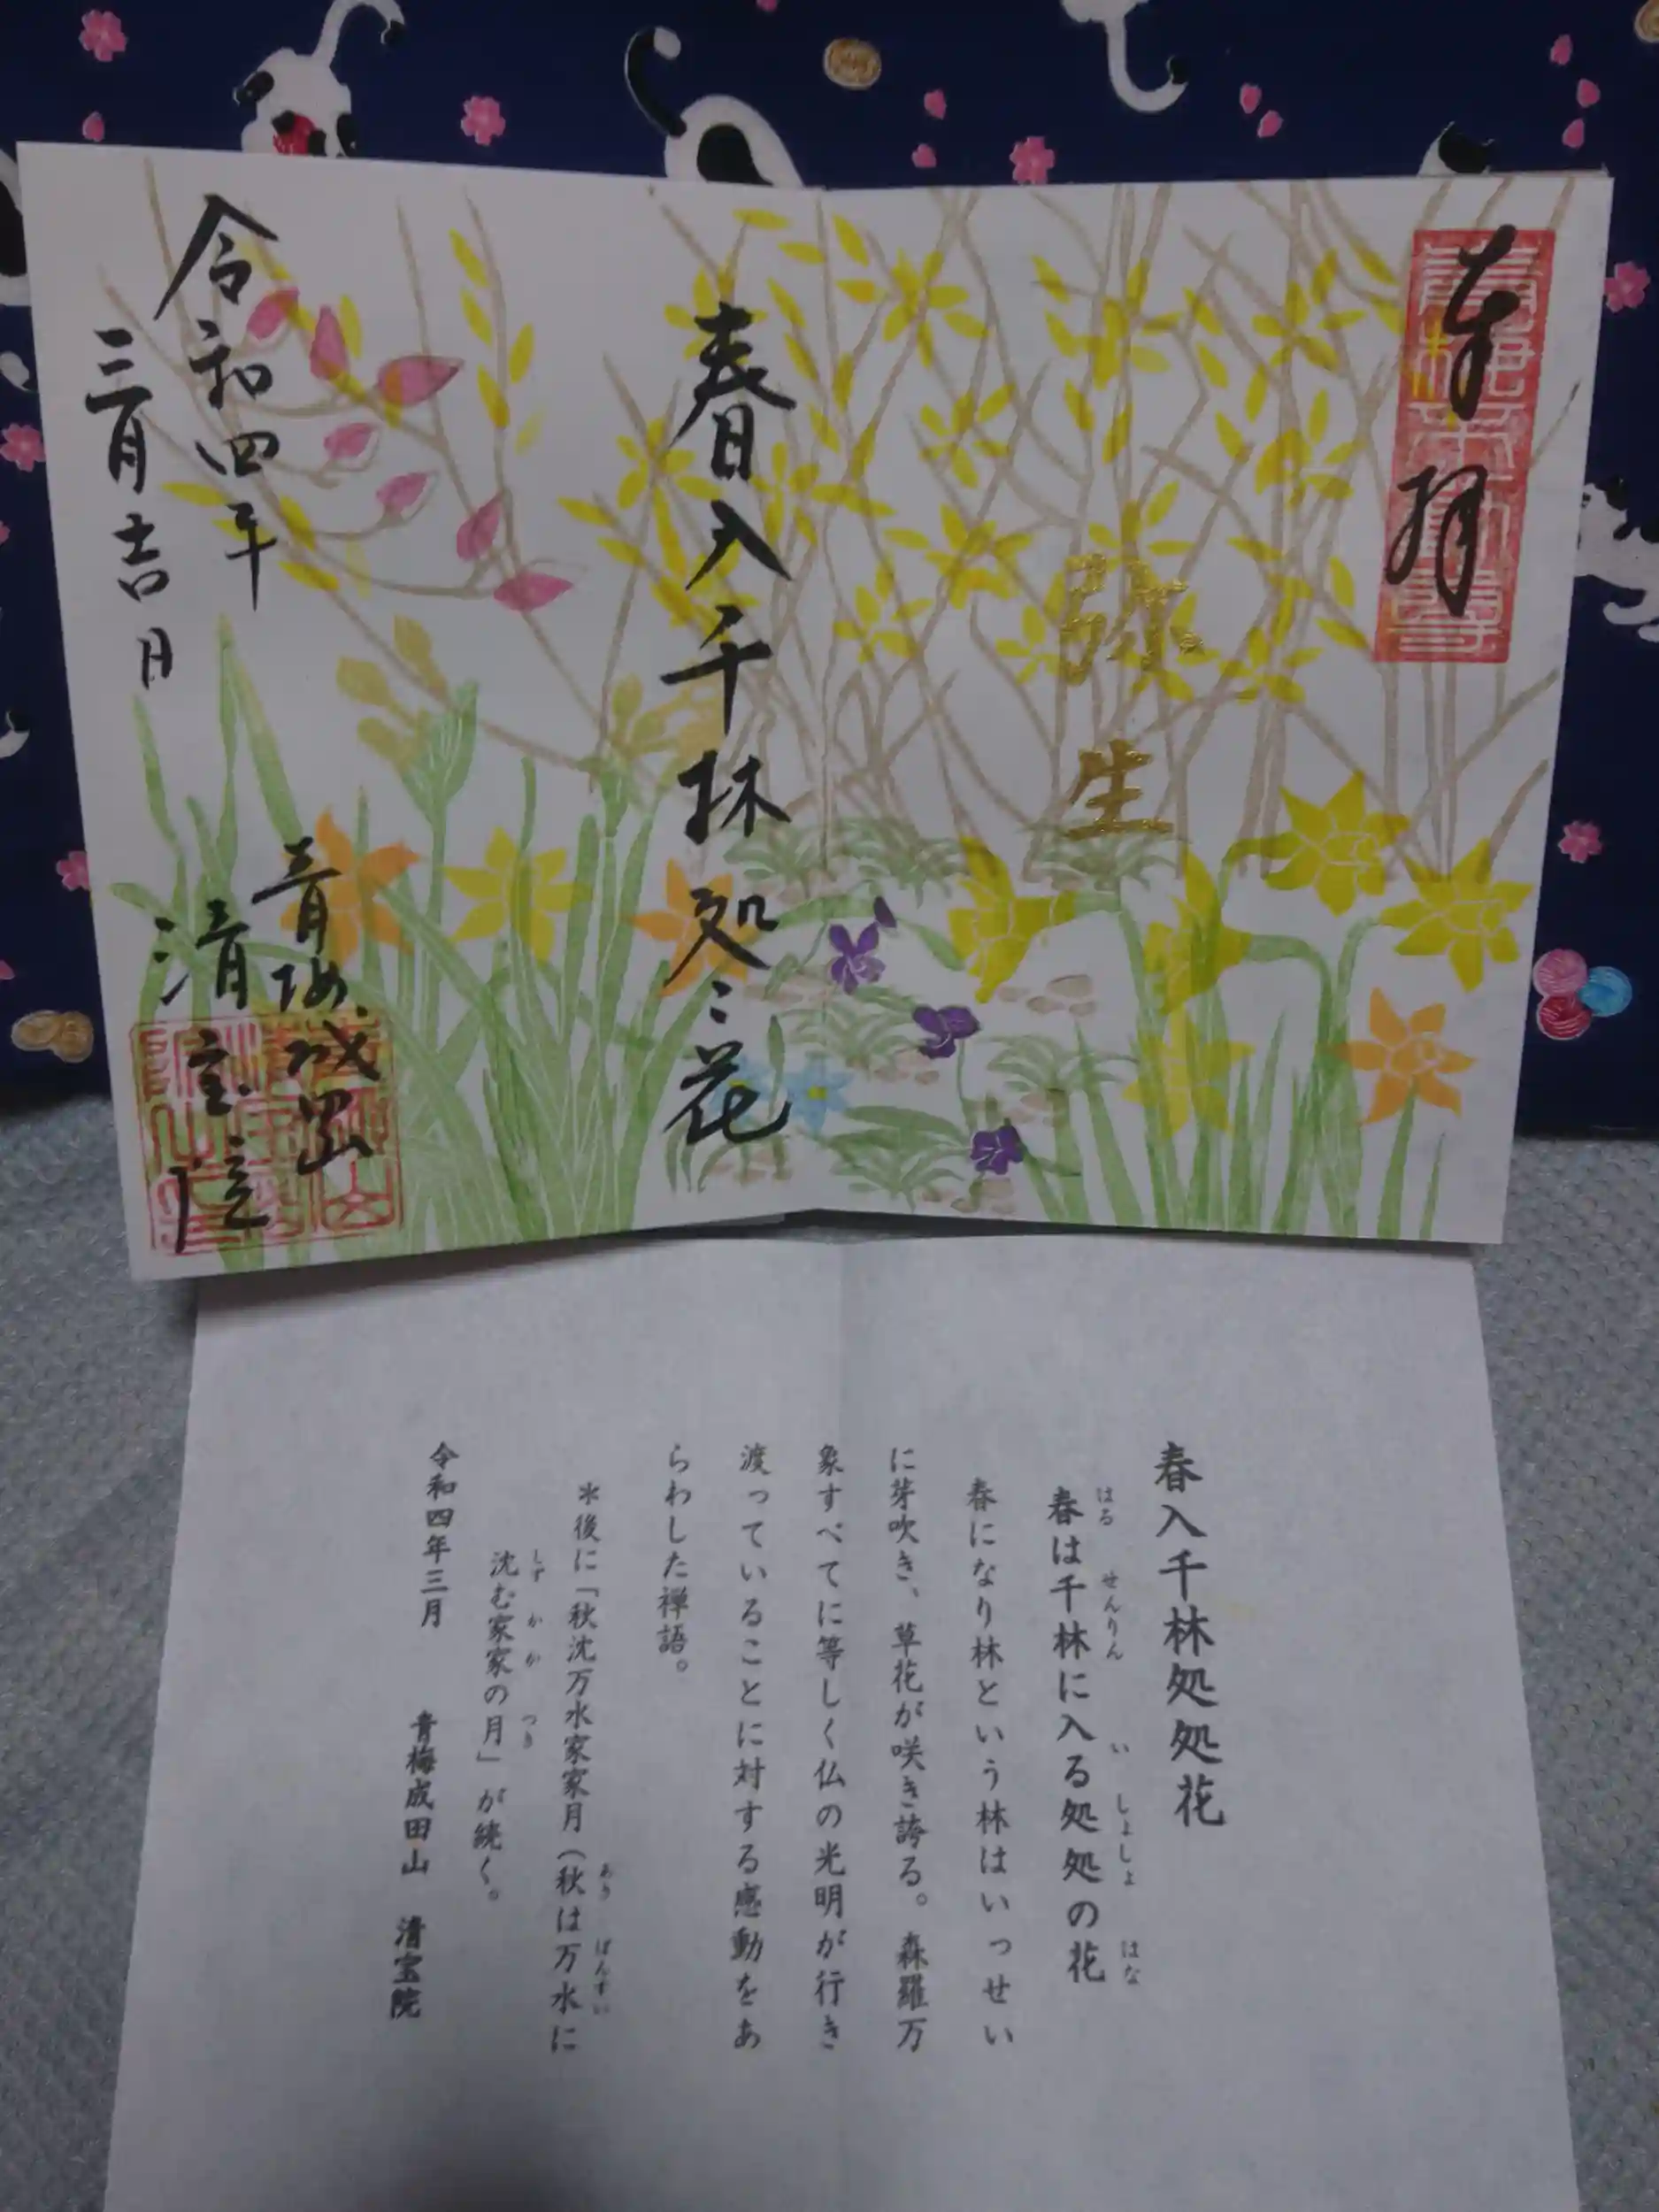 奉拝
弥生
春入千林処〻花
令和四年
三月吉日
青梅成田山
清宝院
春入千林処処花
春は千林に入る処処の花
はる せんりん い しょしょ はな
春になり林という林はいっせい
に芽吹き、草花が咲き誇る。森羅万
象すべてに等しく仏の光明が行き
渡っていることに対する感動をあ
らわした禅語。
＊後に「秋沈万水家家月（秋は万水に
あき ばんすい
沈む家家の月」が続く。
しず か か つき
令和四年三月 青梅成田山 清宝院